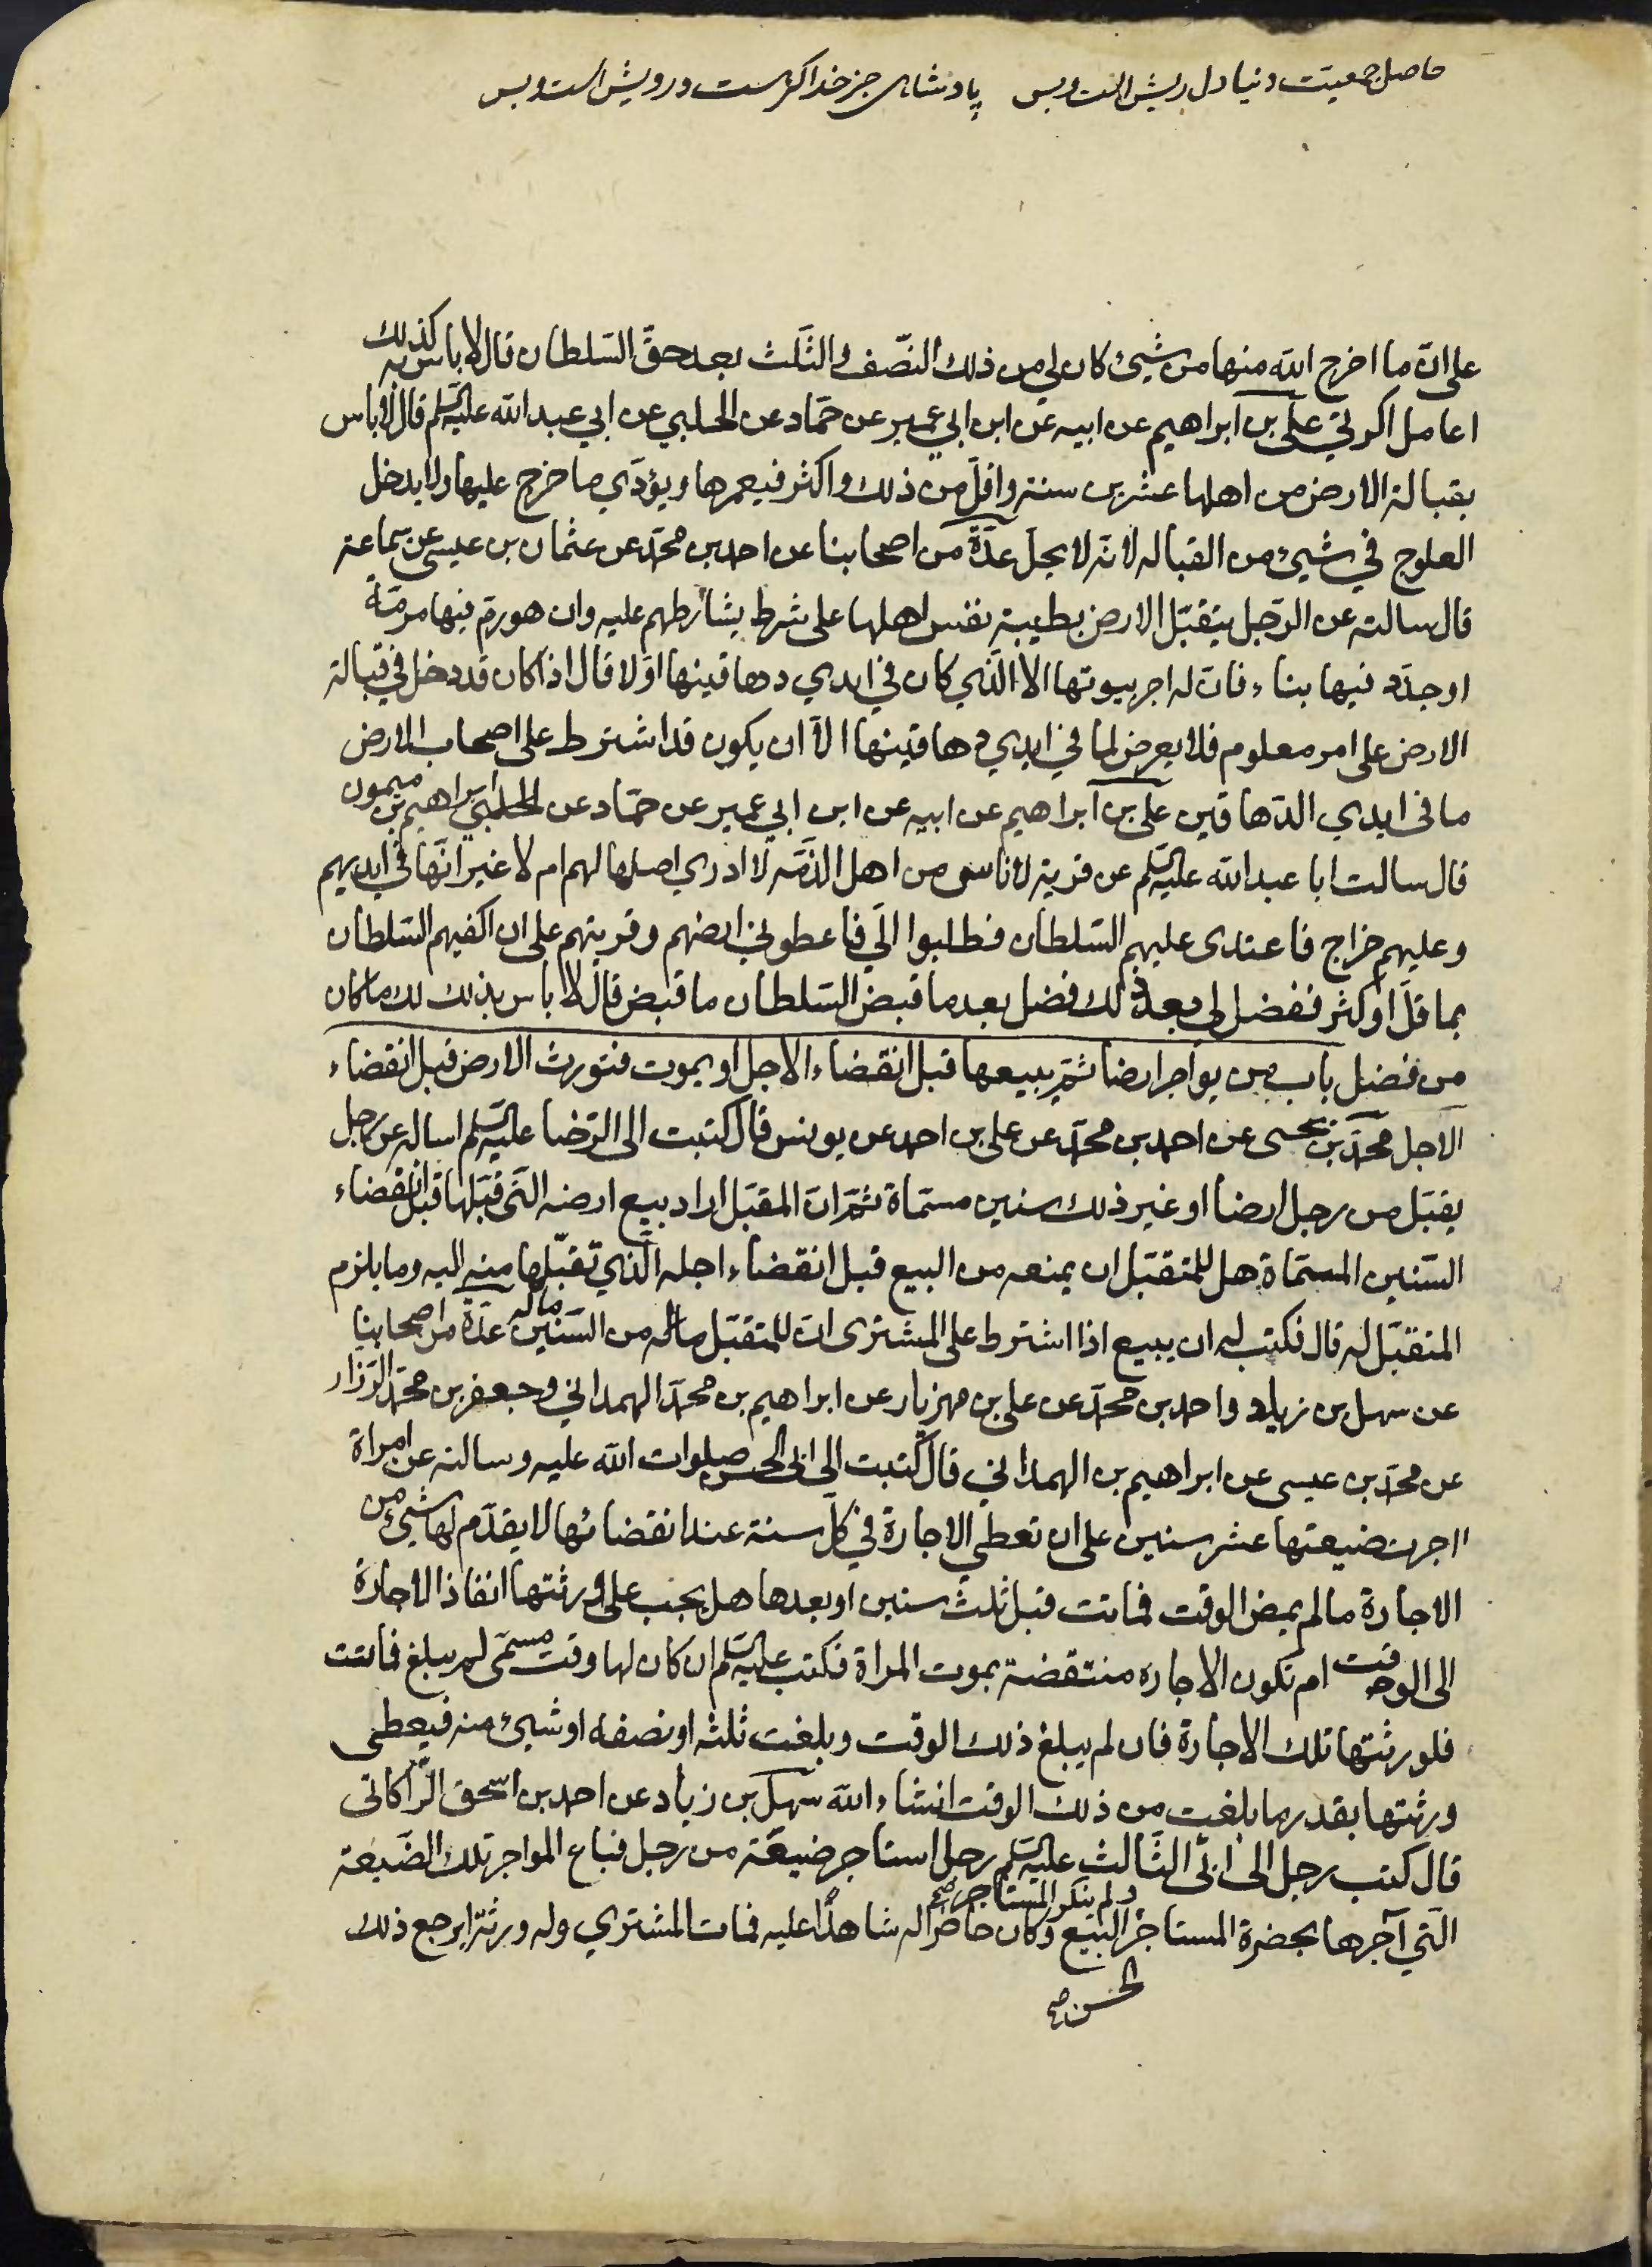 حاصل جمعیت دنیا دل ریش است و بس پادشاهی جز خدا کر هست درویش است و بس
على انّ ما اخرج الله منها من شيئ كان لي من ذلك النّصف والثّلث بعد حقّ السّلطان قال لا باس به كذلك
اعامل اكرتي علي بن ابراهيم عن ابيه عن ابن ابي عمير عن حمّاد عن الحلبي عن ابي عبد الله عليه السلم قال لا باس
بقبالة الارض من اهلها عشرين سنة واقلّ من ذلك واكثر فيعمرها ويؤدّي ما خرج عليها ولا يدخل
العلوج في شيئ من القبالة لانّه لا يحلّ عدّة من اصحابنا عن احمد بن محمّد عن عثمان بن عيسى عن سماعة
قال سالته عن الرّجل يتقبّل الارض بطيبة نفس اهلها على شرط يشارطهم عليه وان هو رمّ فيها مرمّة
او جدّد فيها بناء فانّ له اجر بيوتها الا الّذي كان في ايدي دهاقينها اوّلا قال اذا كان قد دخل في قبالة
الارض على امر معلوم فلا يعرض لما في ايدي دهاقينها الّا ان يكون قد اشترط على اصحاب الارض
ما في ايدي الدّهاقين علي بن ابراهيم عن ابيه عن ابن ابي عمير عن حمّاد عن الحلبي ابراهيم بن ميمون
قال سالت ابا عبد الله عليه السلم عن قرية لاناس من اهل الذّمّة لا ادري اصلها لهم ام لا غير انّها في ايديهم
وعليهم خراج فاعتدى عليهم السّلطان فطلبوا الّي فاعطوني ارضهم وقريتهم على ان اكفيهم السّلطان
بما قلّ او كثر ففضل لي بعد ذلك فضل بعد ما قبض السّلطان ما قبض قال لا باس بذلك لك ما كان
من فضل باب من يواجر ارضا ثمّ يبيعها قبل انقضاء الاجل او يموت فتورث الارض قبل انقضاء
الاجل محمّد بن يحيى عن احمد بن محمّد عن علي بن احمد عن يونس قال كتبت الى الرّضا عليه السلم اساله عن رجل
يقبّل من رجل ارضا او غير ذلك سنين مسمّاة ثمّ انّ المقبّل اراد بيع ارضه الّتى قبّلها قبل انقضاء
السّنين المسمّاة هل للمتقبّل ان يمنعه من البيع قبل انقضاء اجله الّذي تقبّلها منه اليه وما يلزم
المتقبّل له قال فكتب له ان يبيع اذا اشترط على المشترى انّ للمتقبّل ماله من السّنين ماله عدّة من اصحابنا
عن سهل بن زياد واحمد بن محمّد عن علي بن مهزيار عن ابراهيم بن محمّد الهمداني وجعفر بن محمّد الرّزاز
عن محمّد بن عيسى عن ابراهيم بن الهمداني قال كتبت الى ابى الحسن صلوات الله عليه وسالته عن امراة
اجرت ضيعتها عشر سنين على ان تعطي الاجارة في كلّ سنة عند انقضائها لا يقدّم لها شيئ من
الاجارة ما لم يمض الوقت فماتت قبل ثلث سنين او بعدها هل يجب على ورثتها انفاذ الاجارة
الى الوقت ام تكون الاجارة منتقضة بموت المراة فكتب عليه السلم ان كان لها وقت مسمّى لم يبلغ فماتت
فلورثتها تلك الاجارة فان لم يبلغ ذلك الوقت وبلغت ثلثه او نصفه او شيئ منه فيعطى
ورثتها بقدر ما بلغت من ذلك الوقت انشاء الله سهل بن زياد عن احمد بن اسحق الرّاكاتى
قال كتب رجل الى ابى الثّالث عليه السلم رجل استاجر ضيعة من رجل فباع المواجر تلك الضّيعة
ولم ينكر المستاجر صح
الّتي آجرها بحضرة المستاجر البيع وكان حاضرا له شاهدا عليه فمات المشتري وله ورثة ايرجع ذلك
الحسن صح